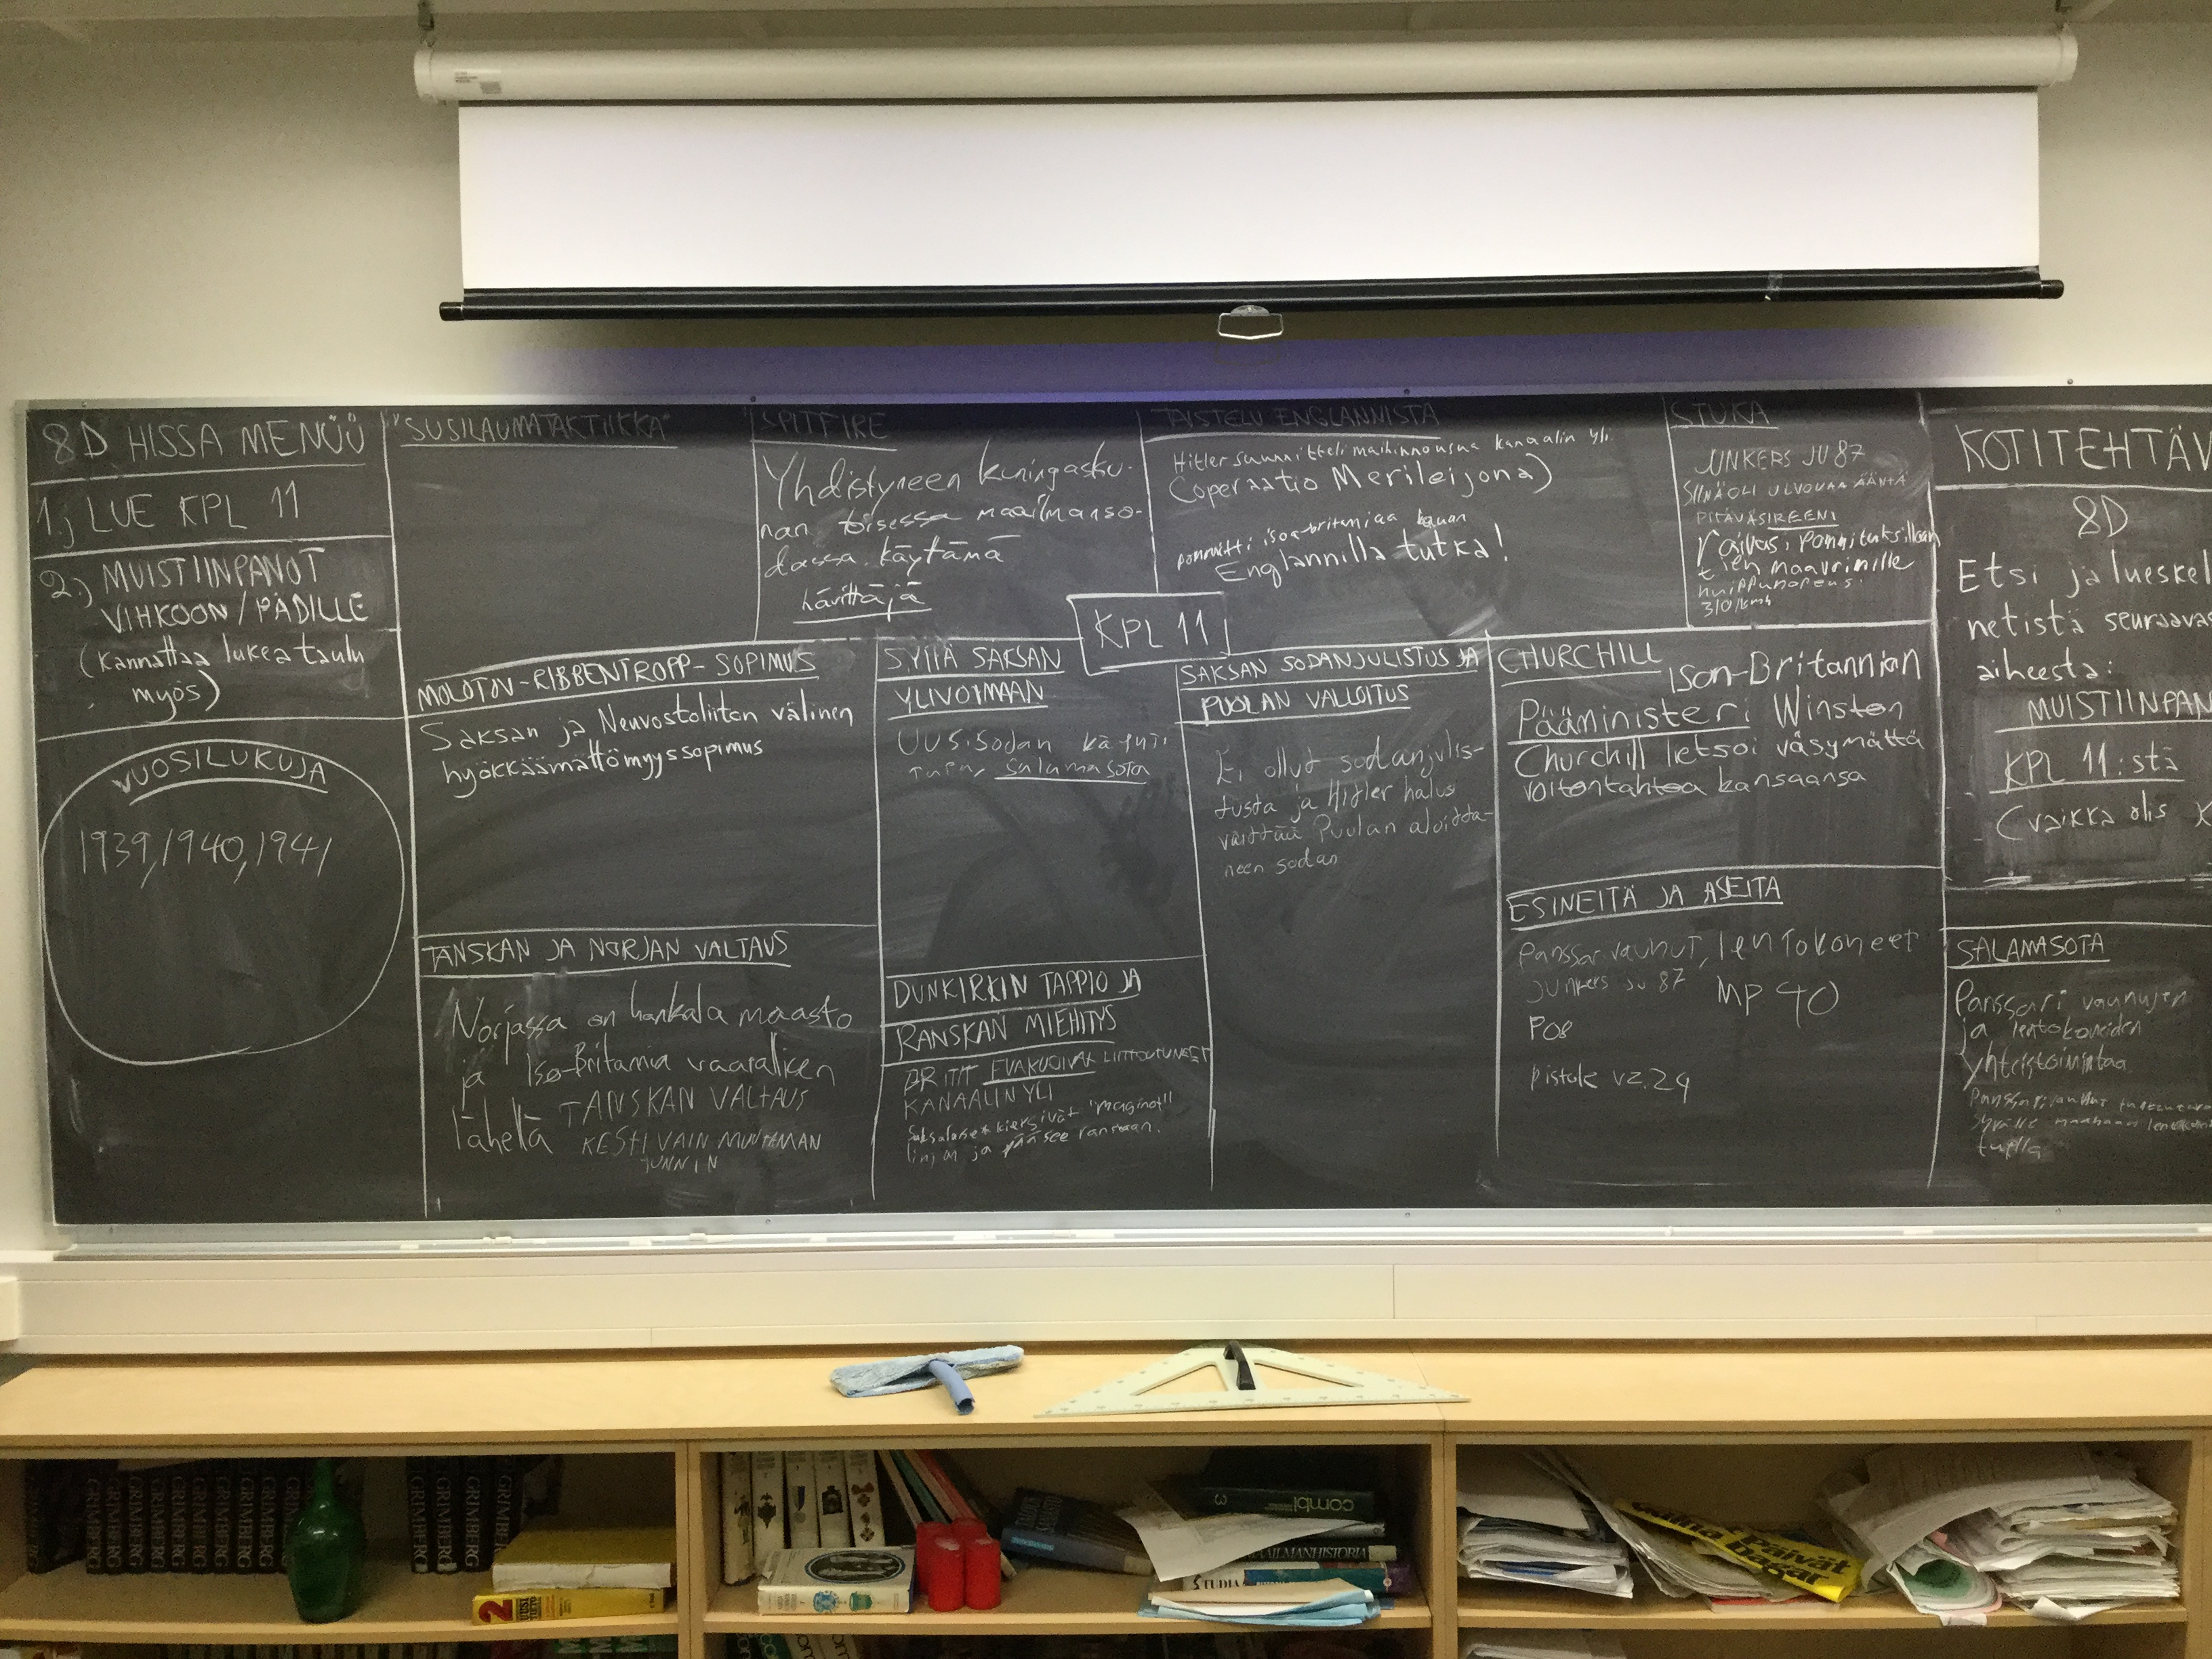 8D HISSA MENÜÜ
1.) LUE KPL 11
2.) MUISTIINPANOT
VIHKOON/PÄDILLE
(kannattaa lukea taulu
myös)
VUOSILUKUJA
1939, 1940, 1941
"SUSILAUMATAKTIIKKA"
SPITFIRE
Yhdistyneen kuningasku-
nan toisessa maailmanso-
dassa käytämä
hävittäjä
TAISTELU ENGLANNISTA
Hitler suunnitteli maihinnousua kanaalin yli
(operaatio Merileijona)
pommitti isoa-britaniaa kauan
Englannilla tutka!
STUKA
JUNKERS JU 87
SIINÄ OLI ULVOVAA ÄÄNTÄ
PITÄVÄ SIREENI
raivasi pommituksillaan
tien maavoimille
huippunopeus:
310/kmh
KPL 11
MOLOTOV-RIBBENTROPP-SOPIMUS
Saksan ja Neuvostoliiton välinen
hyökkäämättömyyssopimus
SYITÄ SAKSAN
YLIVOIMAAN
Uusi sodan
salamasota
SAKSAN SODANJULISTUS JA
PUOLAN VALLOITUS
Ei ollut sodanjulis-
tusta ja Hitler halusi
väittää Puolan aloitta-
neen sodan
CHURCHILL
Ison-Britannian
Pääministeri Winston
Churchill lietsoi väsymättä
voitontahtoa kansaansa
ESINEITÄ JA ASEITA
Panssarvaunut, lentokoneet
Junkers Ju 87 MP 40
PO8
pistole vz.24
TANSKAN JA NORJAN VALTAUS
Norjassa on hankala maasto
ja Iso-Britannia vaarallisen
lähellä TANSKAN VALTAUS
KESTI VAIN MUUTAMAN
TUNNIN
DUNKIRKIN TAPPIO JA
RANSKAN MIEHITYS
BRITIT EVAKUOIVAT LIITTOUTUNEET
KANAALIN YLI
Saksalaiset kiersivät "maginot"
linjan ja pääsee ranskaan.
KOTITEHTÄV
8D
Etsi ja lueskel
netistä seuraavas
aiheesta:
MUISTIINPAN
KPL 11:stä
(vaikka olis K
SALAMASOTA
Panssari vaunujen
ja lentokoneiden
yhteistoimintaa
GRIMBERG
GRIMBERG
GRIMBERG
GRIMBERG
GRIMBERG
GRIMBERG
GRIMBERG
GRIMBERG
2
combi
3
STUDIA
Päivät